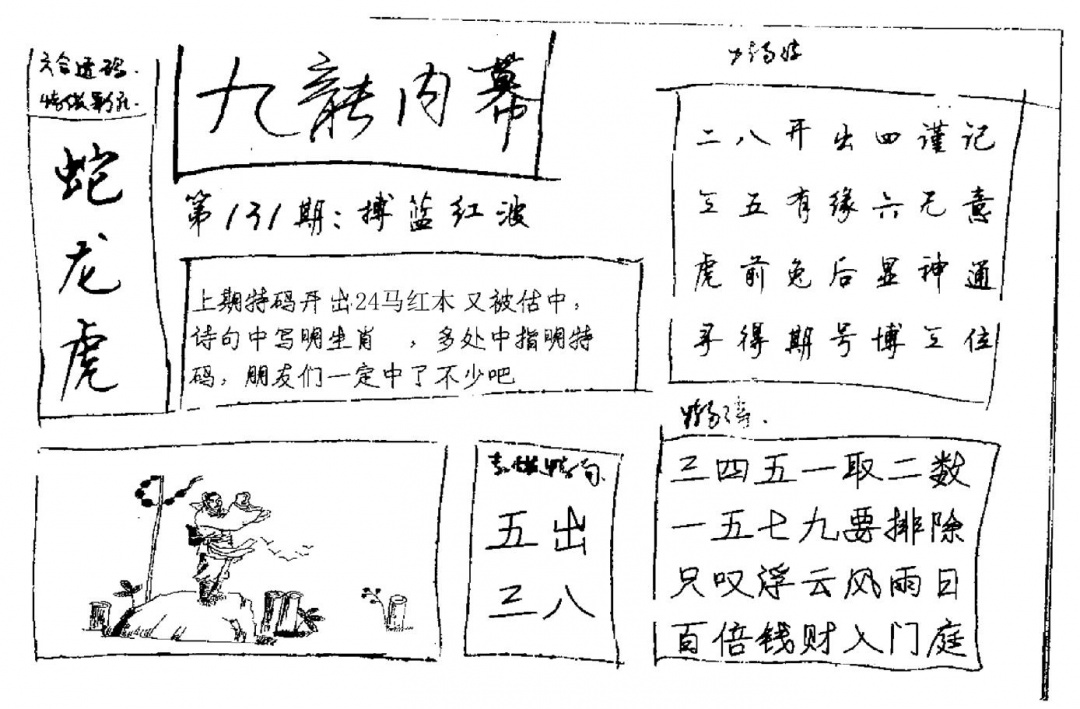 六合透码.
蛇
龙
虎
九龍内幕
第131期：搏蓝红波
上期特码开出24马红本又被估中，
诗句中写明生肖　，多处中指明特
码，朋友们一定中了不少吧
二八开出四谨记
五有缘六元意
虎前兔后显神通
寻得期号博三位
五出
三八
三四五一取二数
一五七九要排除
只叹浮云风雨日
百倍钱财入门庭